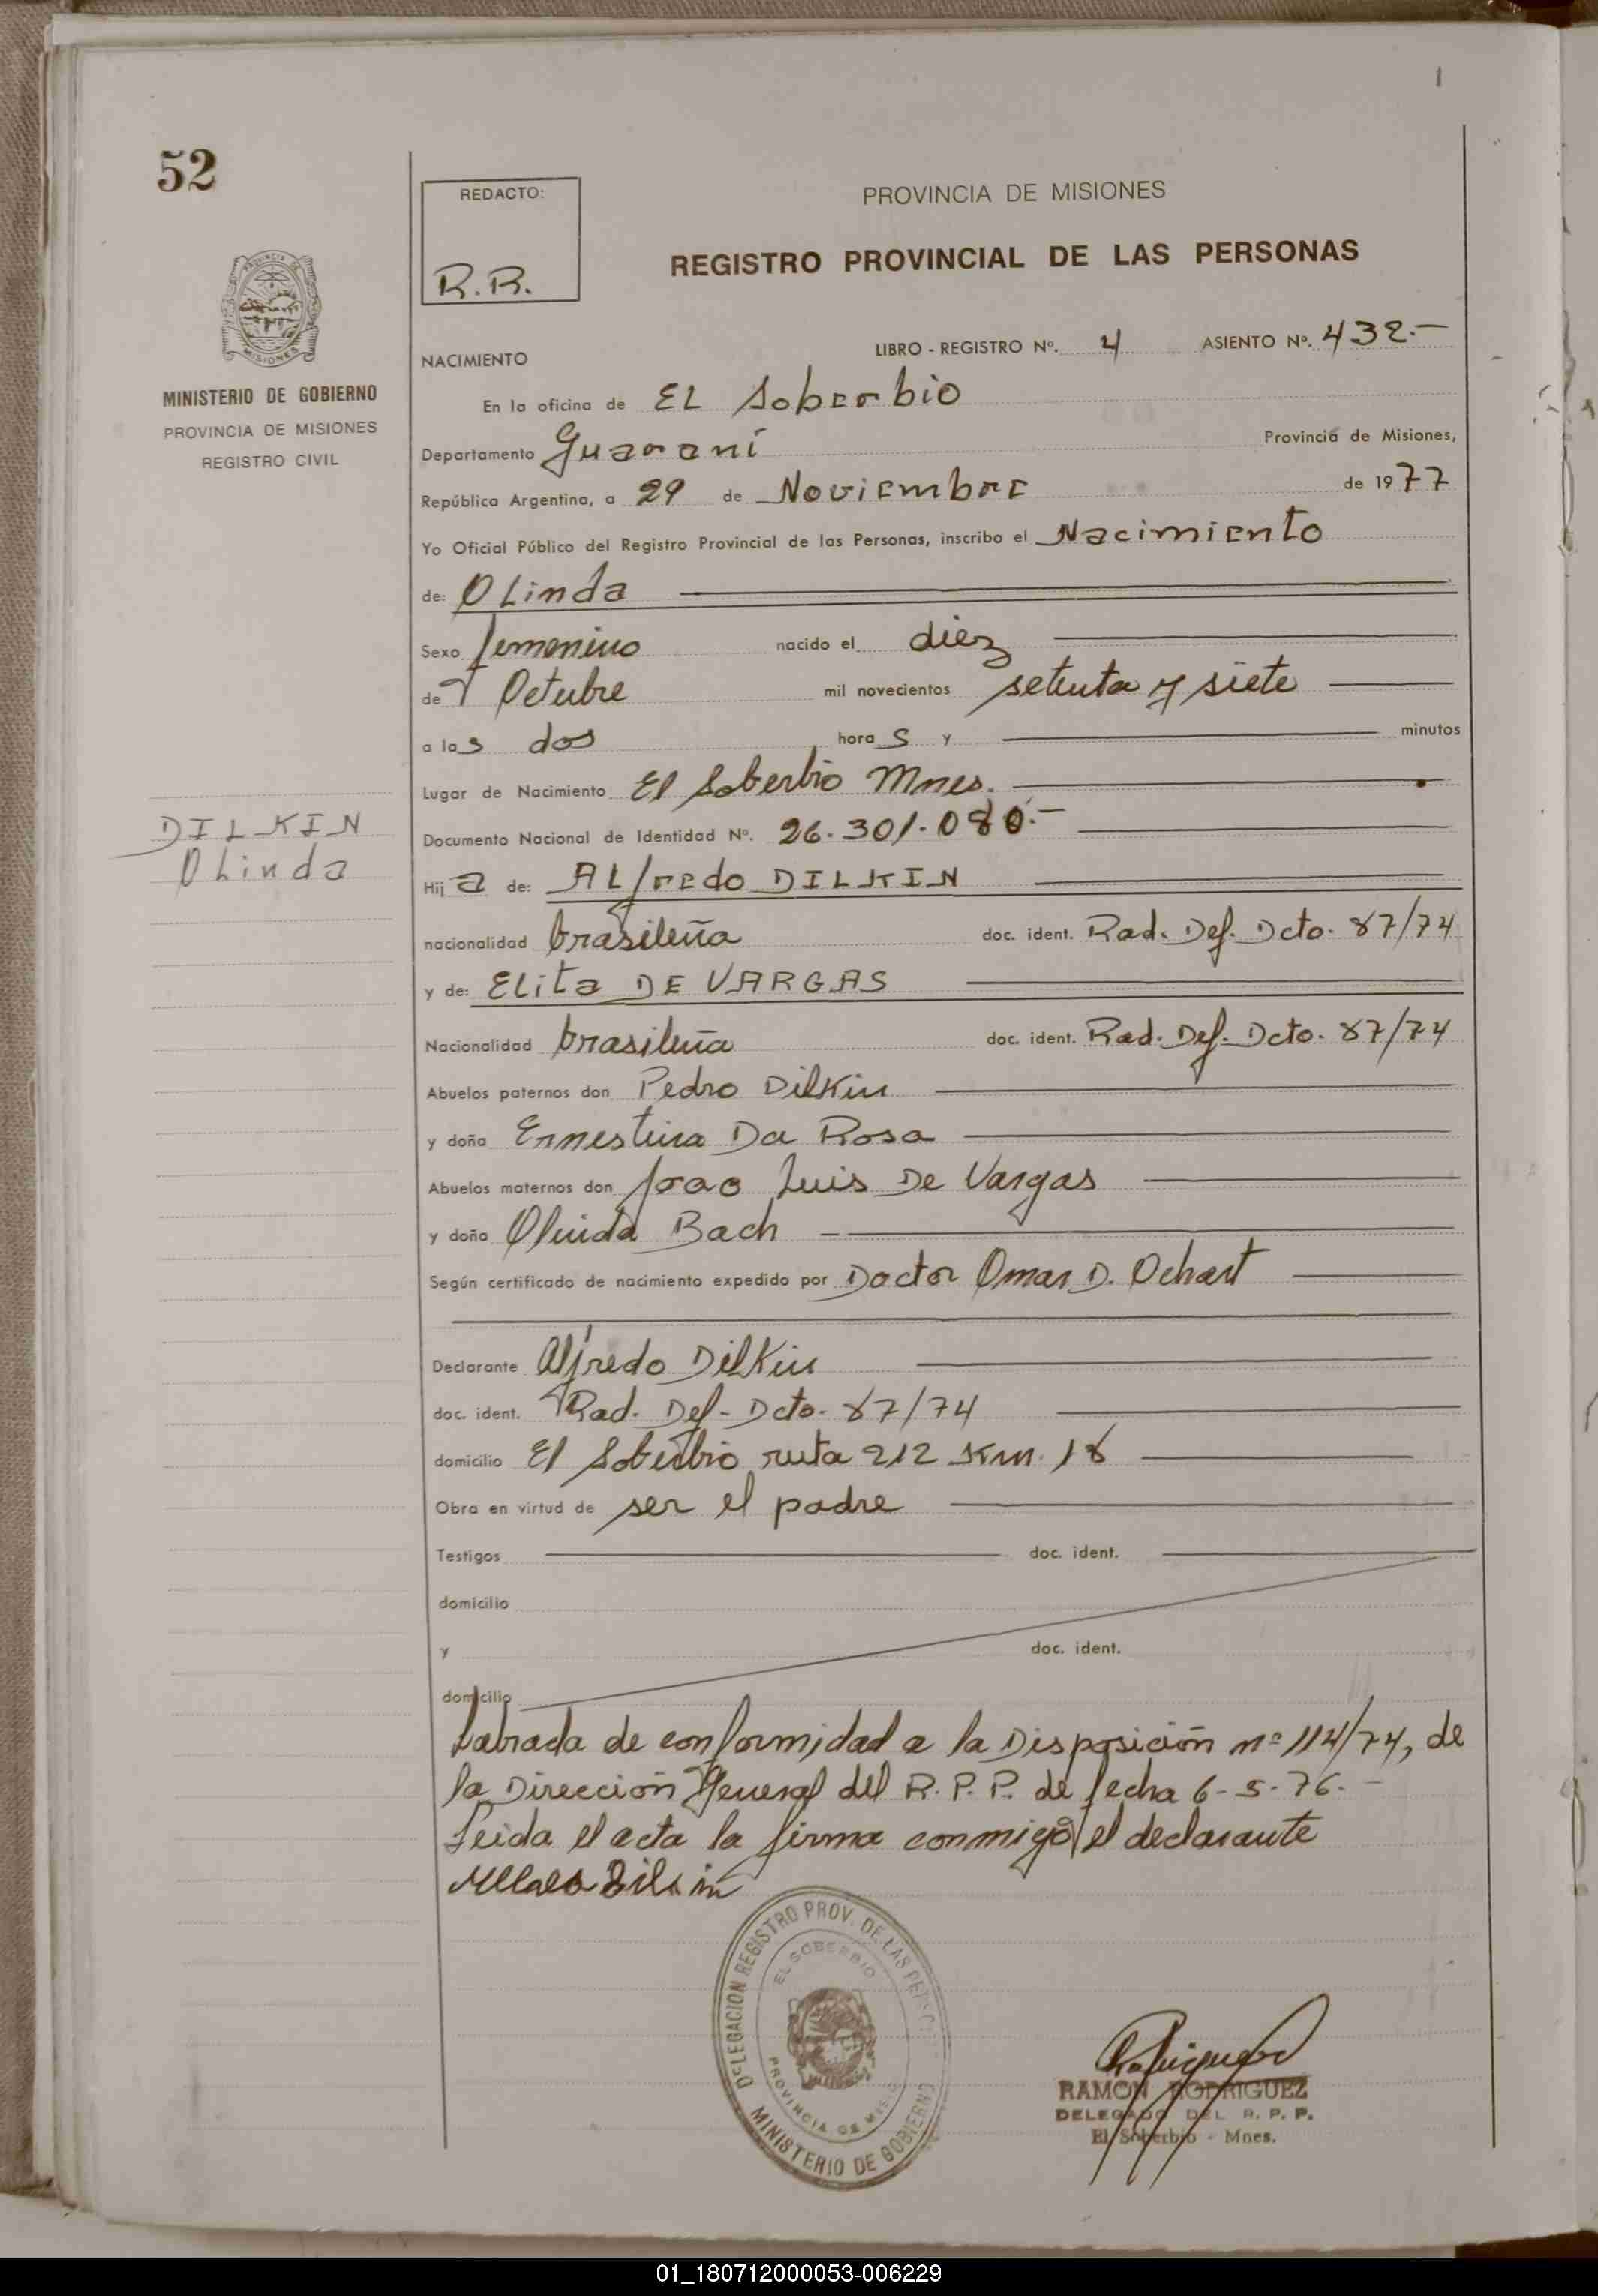 52
REDACTO:
R.R.
PROVINCIA DE MISIONES
REGISTRO PROVINCIAL DE LAS PERSONAS
MINISTERIO DE GOBIERNO
PROVINCIA DE MISIONES
REGISTRO CIVIL
NACIMIENTO
LIBRO - REGISTRO Nº. 4 ASIENTO Nº. 432.-
En la oficina de EL Soberbio
Departamento Guaraní Provincia de Misiones,
República Argentina, a 29 de Noviembre de 1977
Yo Oficial Público del Registro Provincial de las Personas, inscribo el Nacimiento
de: OLinda
Sexo femenino nacido el diez
de Octubre mil novecientos setenta y siete
a las dos horas y minutos
Lugar de Nacimiento El Soberbio Mnes.
DILKIN
OLinda
Documento Nacional de Identidad Nº. 26.301.080.-
Hija de: ALfredo DILKIN
nacionalidad brasileña doc. ident. Rad. Def. Dcto. 87/74
y de: ELita DE VARGAS
Nacionalidad brasileña doc. ident. Rad. Def. Dcto. 87/74
Abuelos paternos don Pedro Dilkin
y doña Ernestina Da Rosa
Abuelos maternos don Joao Luis De Vargas
y doña Olinda Bach
Según certificado de nacimiento expedido por Doctor Omar D. Ochart
Declarante Alfredo Dilkin
doc. ident. Rad. Def- Dcto. 87/74
domicilio El Soberbio ruta 212 Km. 18
Obra en virtud de ser el padre
Testigos doc. ident.
domicilio
y doc. ident.
domicilio
Labrada de conformidad a la Disposición nº 114/74, de
la Dirección General del R.P.P. de fecha 6-5-76.-
Leida el acta la firma conmigo el declarante
Dilkin
DELEGACION REGISTRO PROV. DE LAS
EL SOBERBIO
PROVINCIA DE
MINISTERIO DE GOBIERNO
RAMON RODRIGUEZ
DELEGADO DEL R. P. P.
El Soberbio - Mnes.
01_180712000053-006229